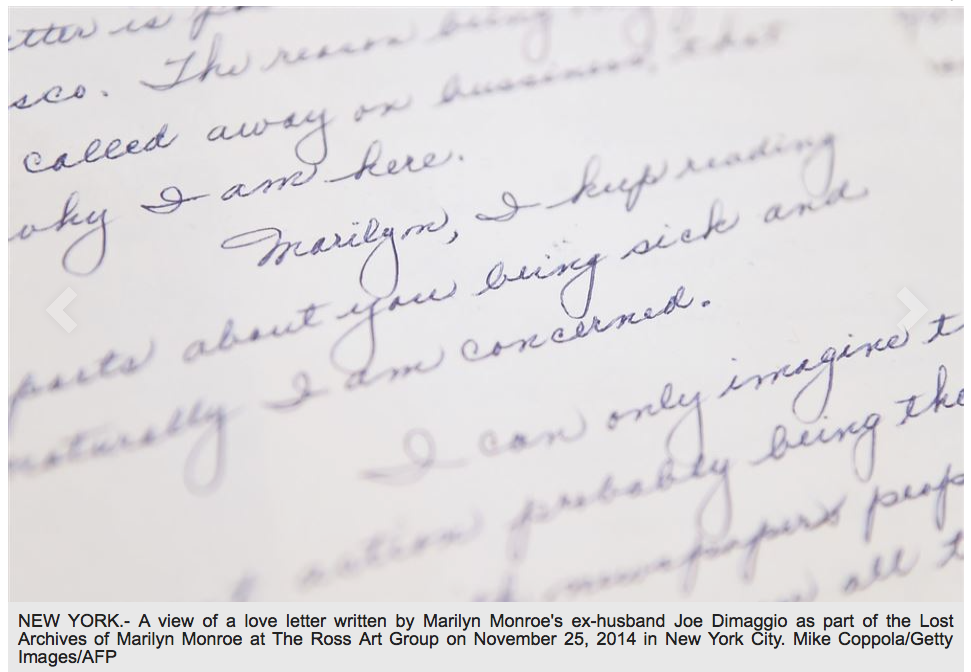 etter is
sco. The reason being
called away on that
why I am here.
Marilyn, I keep reading
ports about you being sick and
naturally I am concerned.
I can only imagine t
t action probably being the
newspapers peop
all t
NEW YORK.- A view of a love letter written by Marilyn Monroe's ex-husband Joe Dimaggio as part of the Lost
Archives of Marilyn Monroe at The Ross Art Group on November 25, 2014 in New York City. Mike Coppola/Getty
Images/AFP